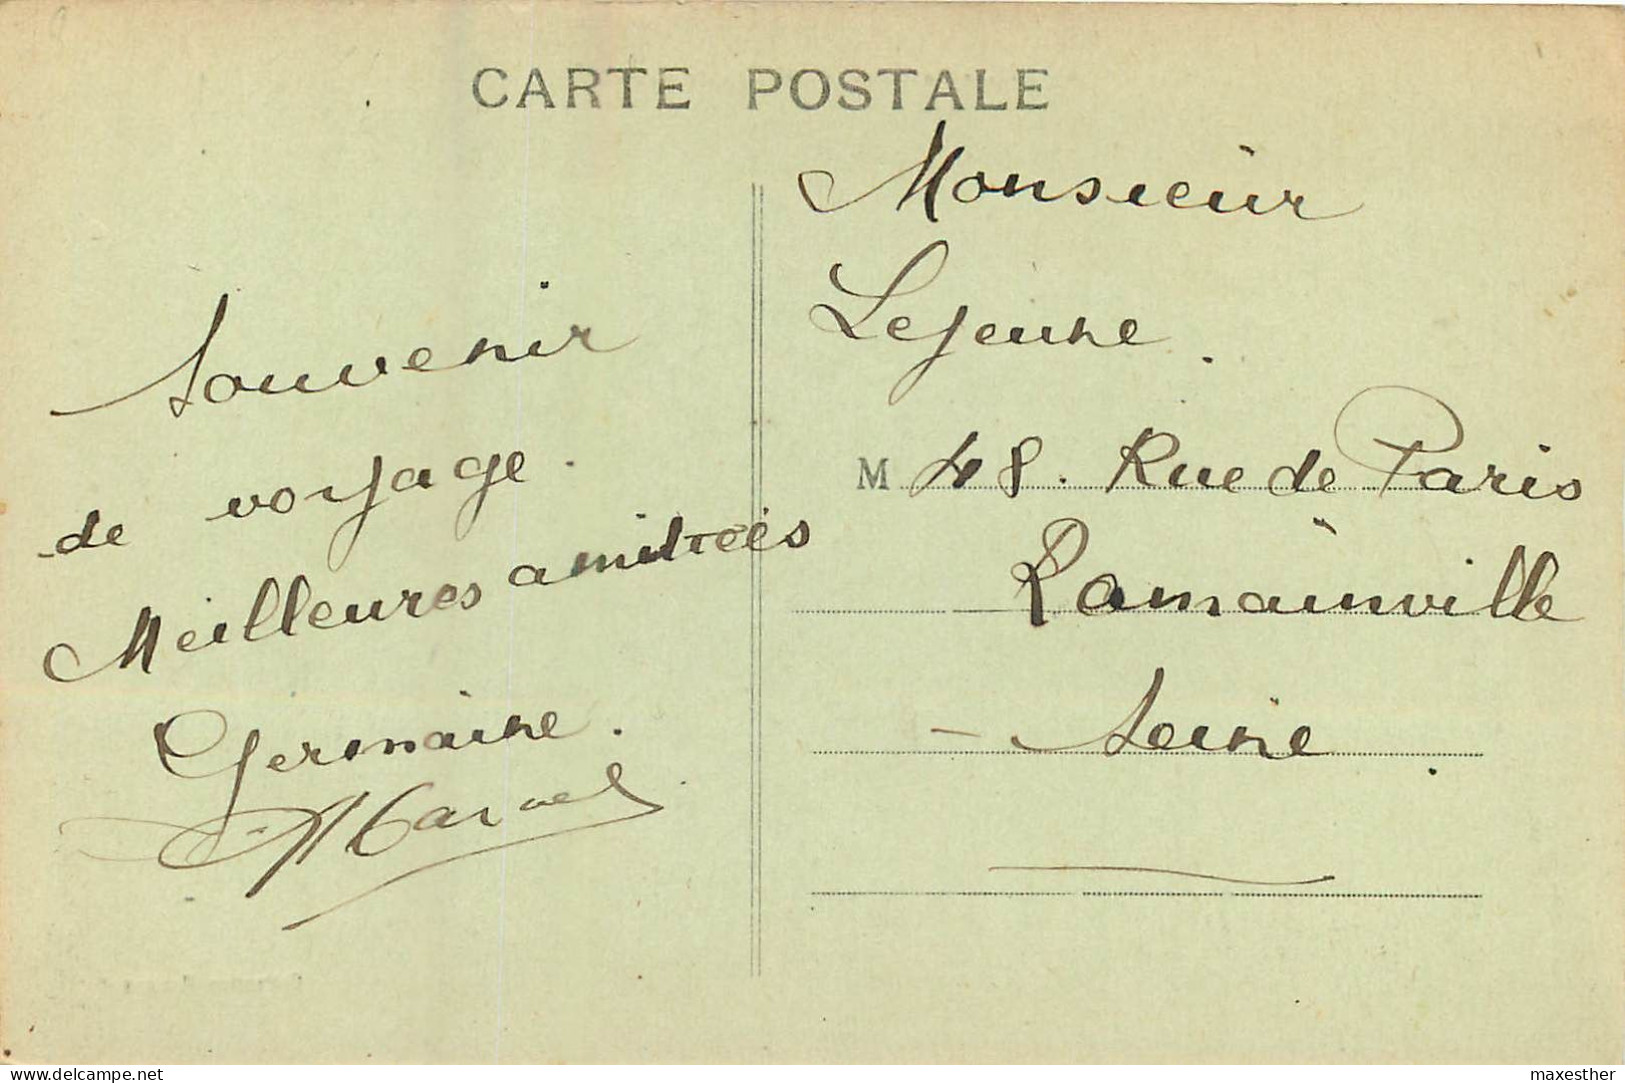 CARTE POSTALE
Souvenir
de voyage.
Meilleures amitiées
Germaine.
Marcel
Monsieur
Lejeune.
M 48. Rue de Paris
Romainville
- Seine.
delcampe.net
maxesther